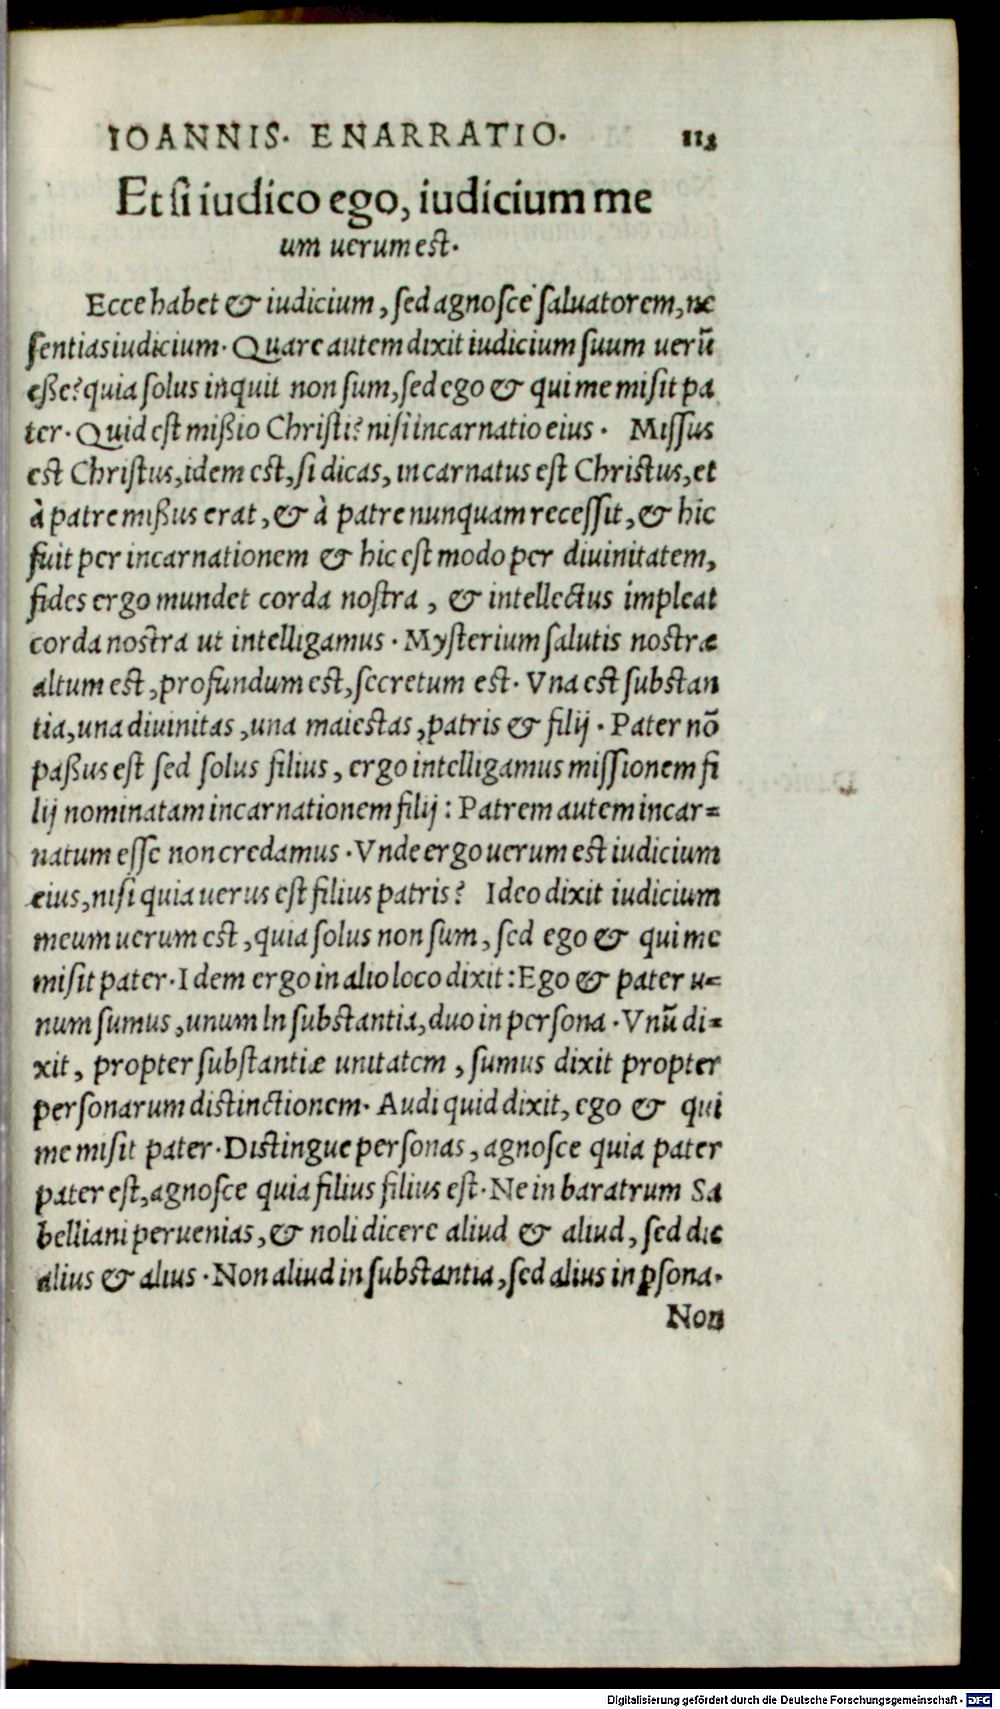 IOANNIS. ENARRATIO. 113
Et si iudico ego, iudicium me
um uerum est.
Ecce habet & iudicium, sed agnosce saluatorem, ne
sentias iudicium. Quare autem dixit iudicium suum uerũ
eße? quia solus inquit non sum, sed ego & qui me misit pa
ter. Quid est mißio Christi? nisi incarnatio eius. Missus
est Christus, idem est, si dicas, incarnatus est Christus, et
à patre mißus erat, & à patre nunquam recessit, & hic
fuit per incarnationem & hic est modo per diuinitatem,
fides ergo mundet corda nostra, & intellectus impleat
corda nostra ut intelligamus. Mysterium salutis nostræ
altum est, profundum est, secretum est. Vna est substan
tia, una diuinitas, una maiestas, patris & filij. Pater nõ
paßus est sed solus filius, ergo intelligamus missionem fi
lij nominatam incarnationem filij: Patrem autem incar=
natum esse non credamus. Vnde ergo uerum est iudicium
eius, nisi quia uerus est filius patris? Ideo dixit iudicium
meum uerum est, quia solus non sum, sed ego & qui me
misit pater. Idem ergo in alio loco dixit: Ego & pater u=
num sumus, unum In substantia, duo in persona. Vnũ di=
xit, propter substantiæ unitatem, sumus dixit propter
personarum distinctionem. Audi quid dixit, ego & qui
me misit pater. Distingue personas, agnosce quia pater
pater est, agnosce quia filius filius est. Ne in baratrum Sa
belliani peruenias, & noli dicere aliud & aliud, sed dic
alius & alius. Non aliud in substantia, sed alius in ꝑsona.
Non
Digitalisierung gefördert durch die Deutsche Forschungsgemeinschaft - DFG